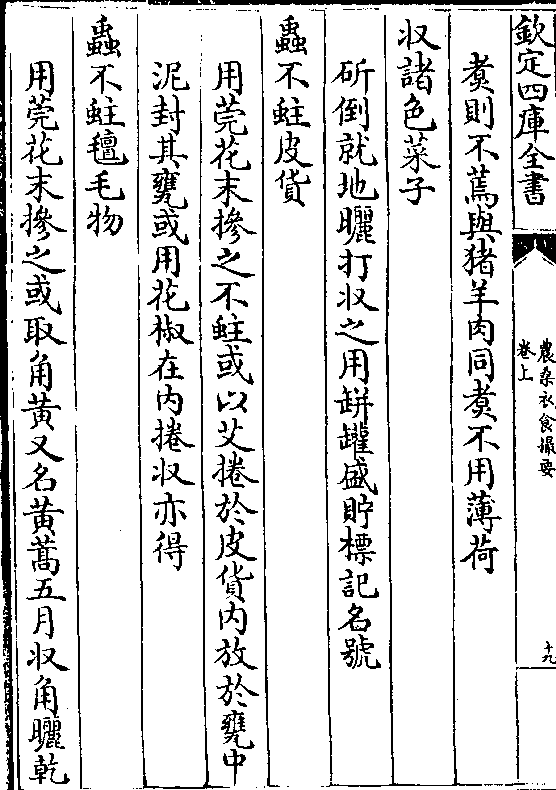 欽定四庫全書
農桑衣食撮要
卷上
十九
煑則不蔫與猪羊肉同煑不用薄荷
収諸色菜子
斫倒就地曬打収之用缾罐盛貯標記名號
蟲不蛀皮貨
用莞花末摻之不蛀或以艾捲於皮貨内放於甕中
泥封其甕或用花椒在内捲収亦得
蟲不蛀氊毛物
用莞花末摻之或取角黄又名黄蒿五月収角曬乾